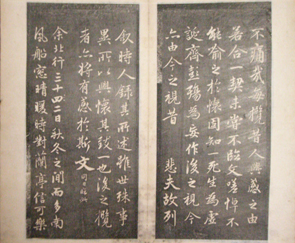 不痛哉每攬昔人興感之由
若合一契未嘗不臨文嗟悼不
能喻之於懷固知一死生為虛
誕齊彭殤為妄作後之視今
亦由今之視昔 悲夫故列
叙時人錄其所述雖世殊事
異所以興懷其致一也後之攬
者亦將有感於斯文
余北行三十二日秋冬之間而多南
風船窗晴暖時對蘭亭信可樂